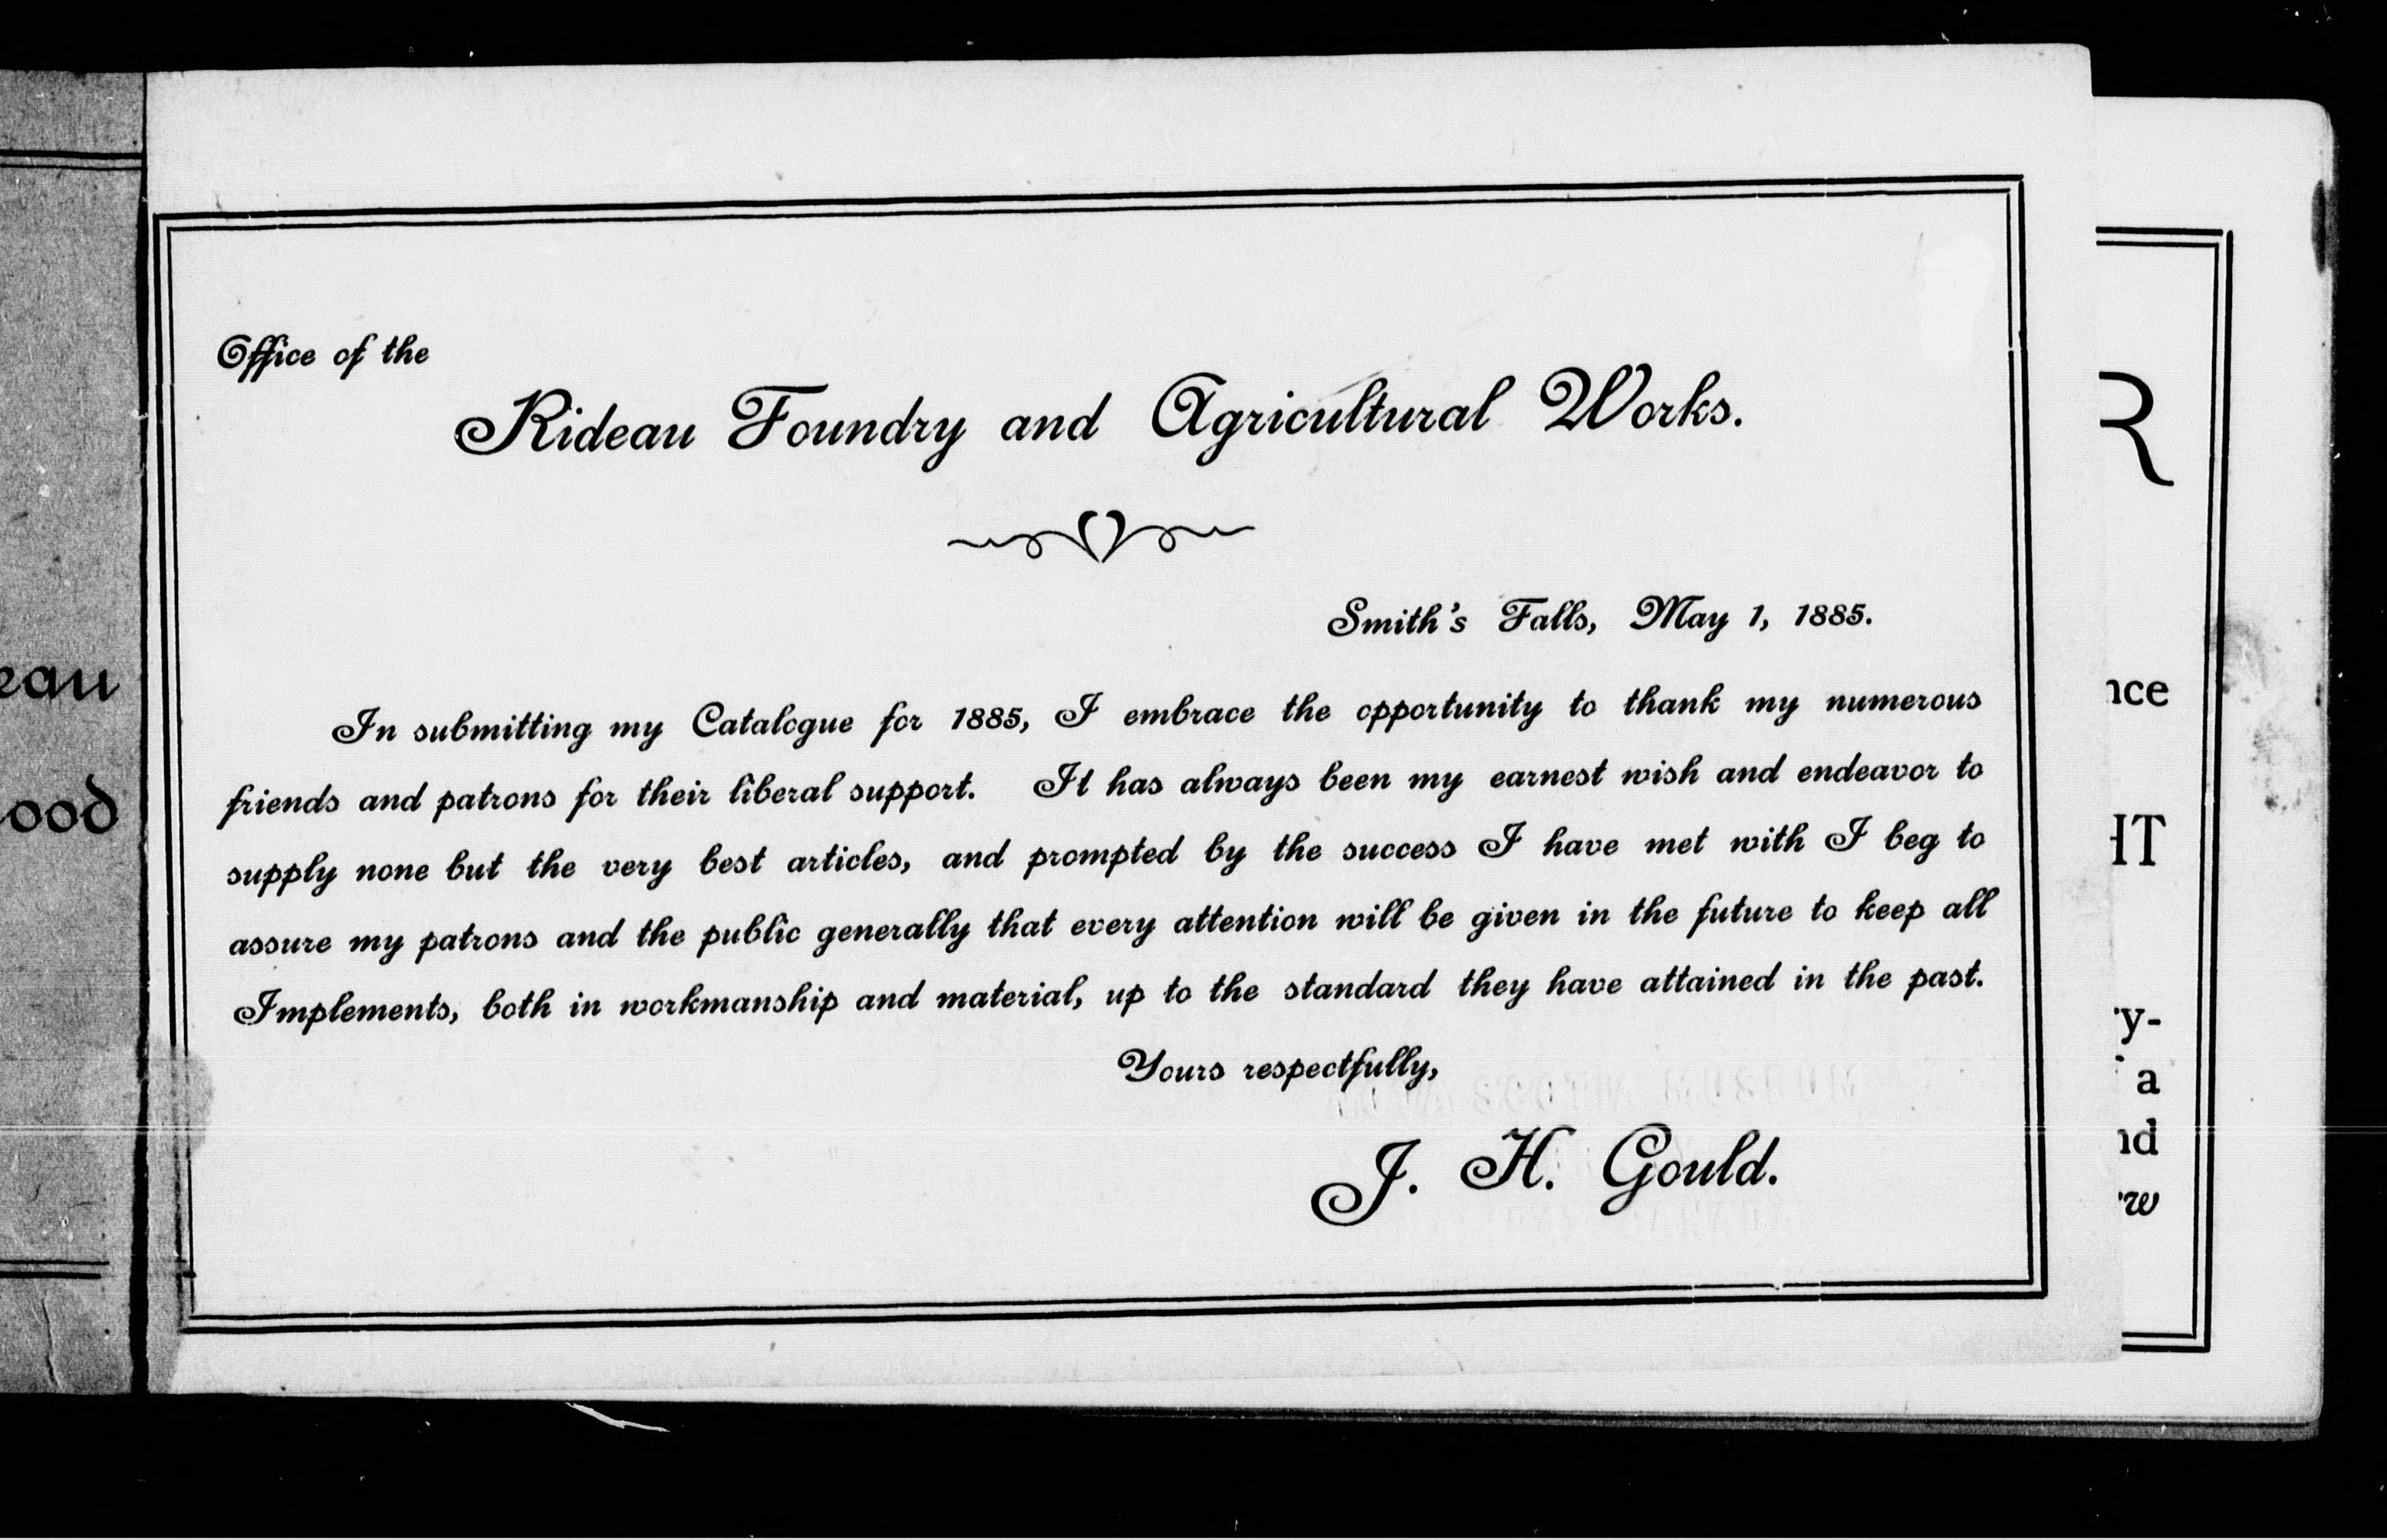 Office of the
Rideau Foundry and Agricultural Works.
Smith's Falls, May 1, 1885.
In submitting my Catalogue for 1885, I embrace the opportunity to thank my numerous
friends and patrons for their liberal support. It has always been my earnest wish and endeavor to
supply none but the very best articles, and prompted by the success I have met with I beg to
assure my patrons and the public generally that every attention will be given in the future to keep all
Implements, both in workmanship and material, up to the standard they have attained in the past.
Yours respectfully,
J. H. Gould.